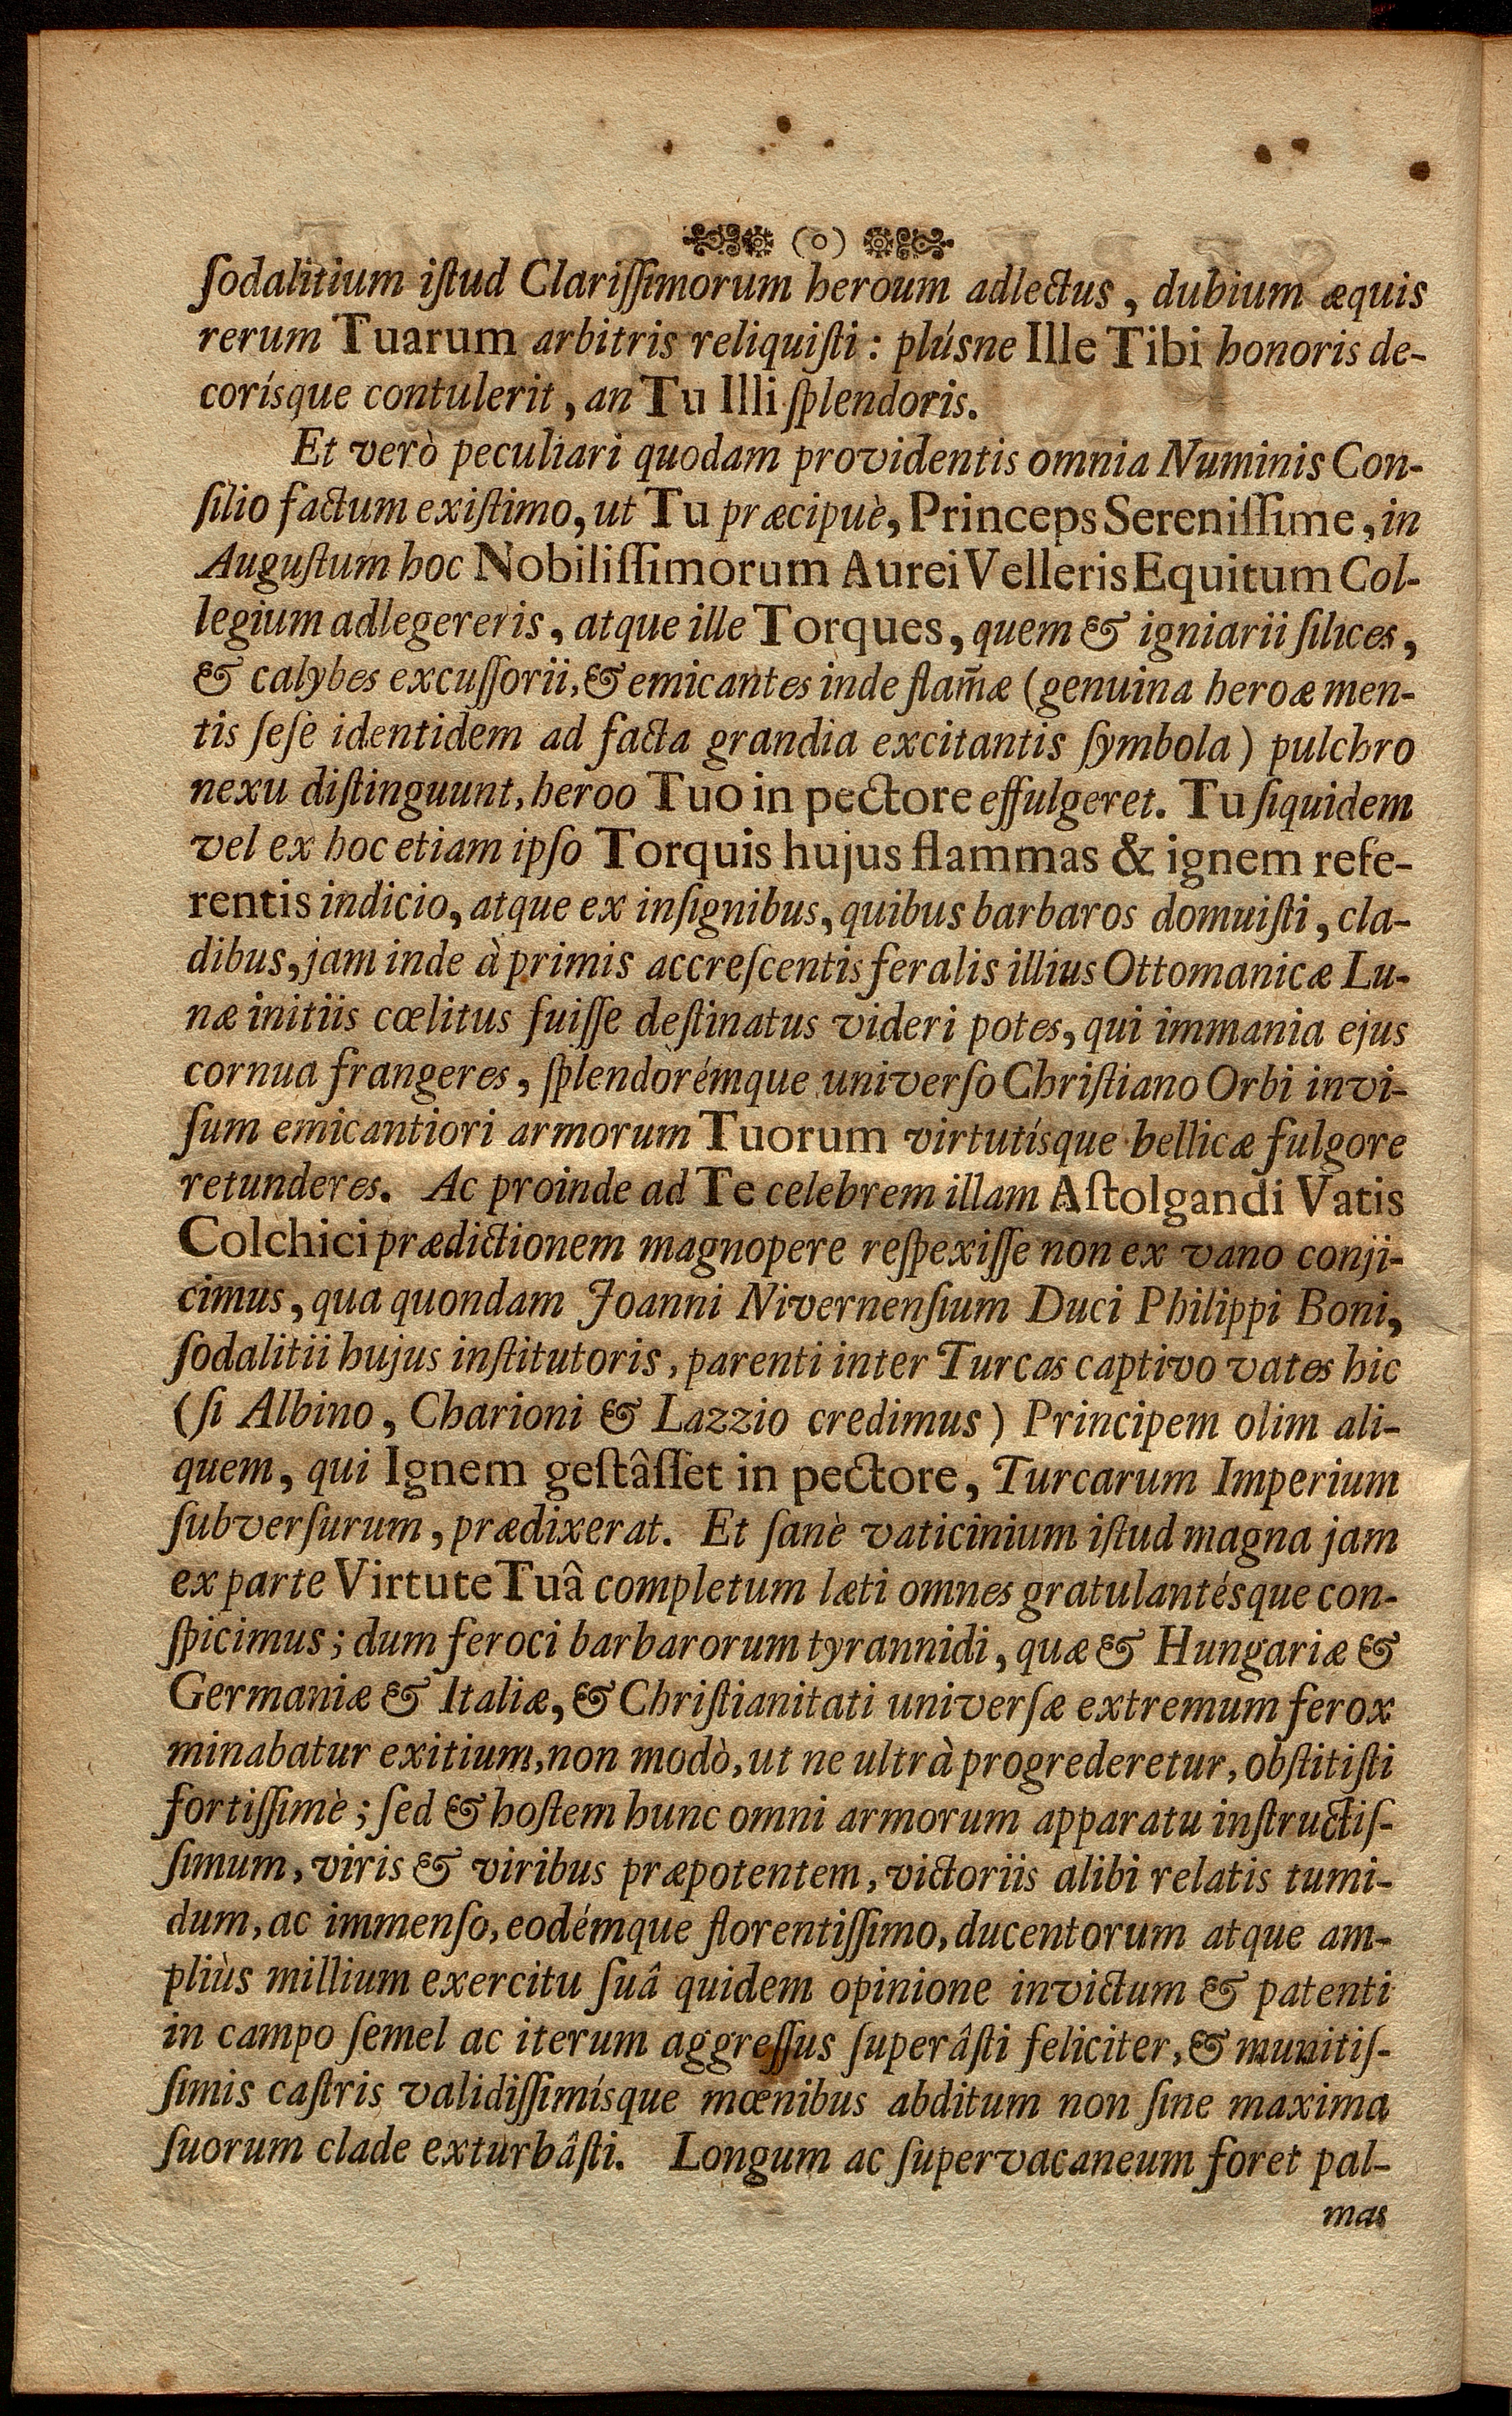 (o)
ſodalitium iſtud Clariſſimorum heroum adlectus, dubium æquis
rerum Tuarum arbitris reliquiſti: plúsne Ille Tibi honoris de-
corísque contulerit, an Tu Illi ſplendoris.
Et verò peculiari quodam providentis omnia Numinis Con-
ſilio factum exiſtimo, ut Tu præcipuè, Princeps Sereniſſime, in
Auguſtum hoc Nobiliſſimorum Aurei Velleris Equitum Col-
legium adlegereris, atque ille Torques, quem & igniarii ſilices,
& calybes excuſſorii, & emicantes inde flam̃æ (genuina heroæ men-
tis ſeſe identidem ad facta grandia excitantis ſymbola) pulchro
nexu diſtinguunt, heroo Tuo in pectore effulgeret. Tu ſiquidem
vel ex hoc etiam ipſo Torquis hujus flammas & ignem refe-
rentis indicio, atque ex inſignibus, quibus barbaros domuiſti, cla-
dibus, jam inde à primis accreſcentis feralis illius Ottomanicæ Lu-
næ initiis cœlitus fuiſſe deſtinatus videri potes, qui immania ejus
cornua frangeres, ſplendorémque univerſo Chriſtiano Orbi invi-
ſum emicantiori armorum Tuorum virtutísque bellicæ fulgore
retunderes. Ac proinde ad Te celebrem illam Aſtolgandi Vatis
Colchici prædictionem magnopere reſpexiſſe non ex vano conji-
cimus, qua quondam Joanni Nivernenſium Duci Philippi Boni,
ſodalitii hujus inſtitutoris, parenti inter Turcas captivo vates hic
(ſi Albino, Charioni & Lazzio credimus) Principem olim ali-
quem, qui Ignem geſtâſſet in pectore, Turcarum Imperium
ſubverſurum, prædixerat. Et ſanè vaticinium iſtud magna jam
ex parte Virtute Tuâ completum læti omnes gratulantésque con-
ſpicimus; dum feroci barbarorum tyrannidi, quæ & Hungariæ &
Germaniæ & Italiæ, & Chriſtianitati univerſæ extremum ferox
minabatur exitium, non modò, ut ne ultrà progrederetur, obſtitiſti
fortiſſimè; ſed & hoſtem hunc omni armorum apparatu inſtructiſ-
ſimum, viris & viribus præpotentem, victoriis alibi relatis tumi-
dum, ac immenſo, eodémque florentiſſimo, ducentorum atque am-
pliùs millium exercitu ſuâ quidem opinione invictum & patenti
in campo ſemel ac iterum aggreſſus ſuperâſti feliciter, & munitiſ-
ſimis caſtris validiſſimísque mœnibus abditum non ſine maxima
ſuorum clade exturbâſti. Longum ac ſupervacaneum foret pal-
mas